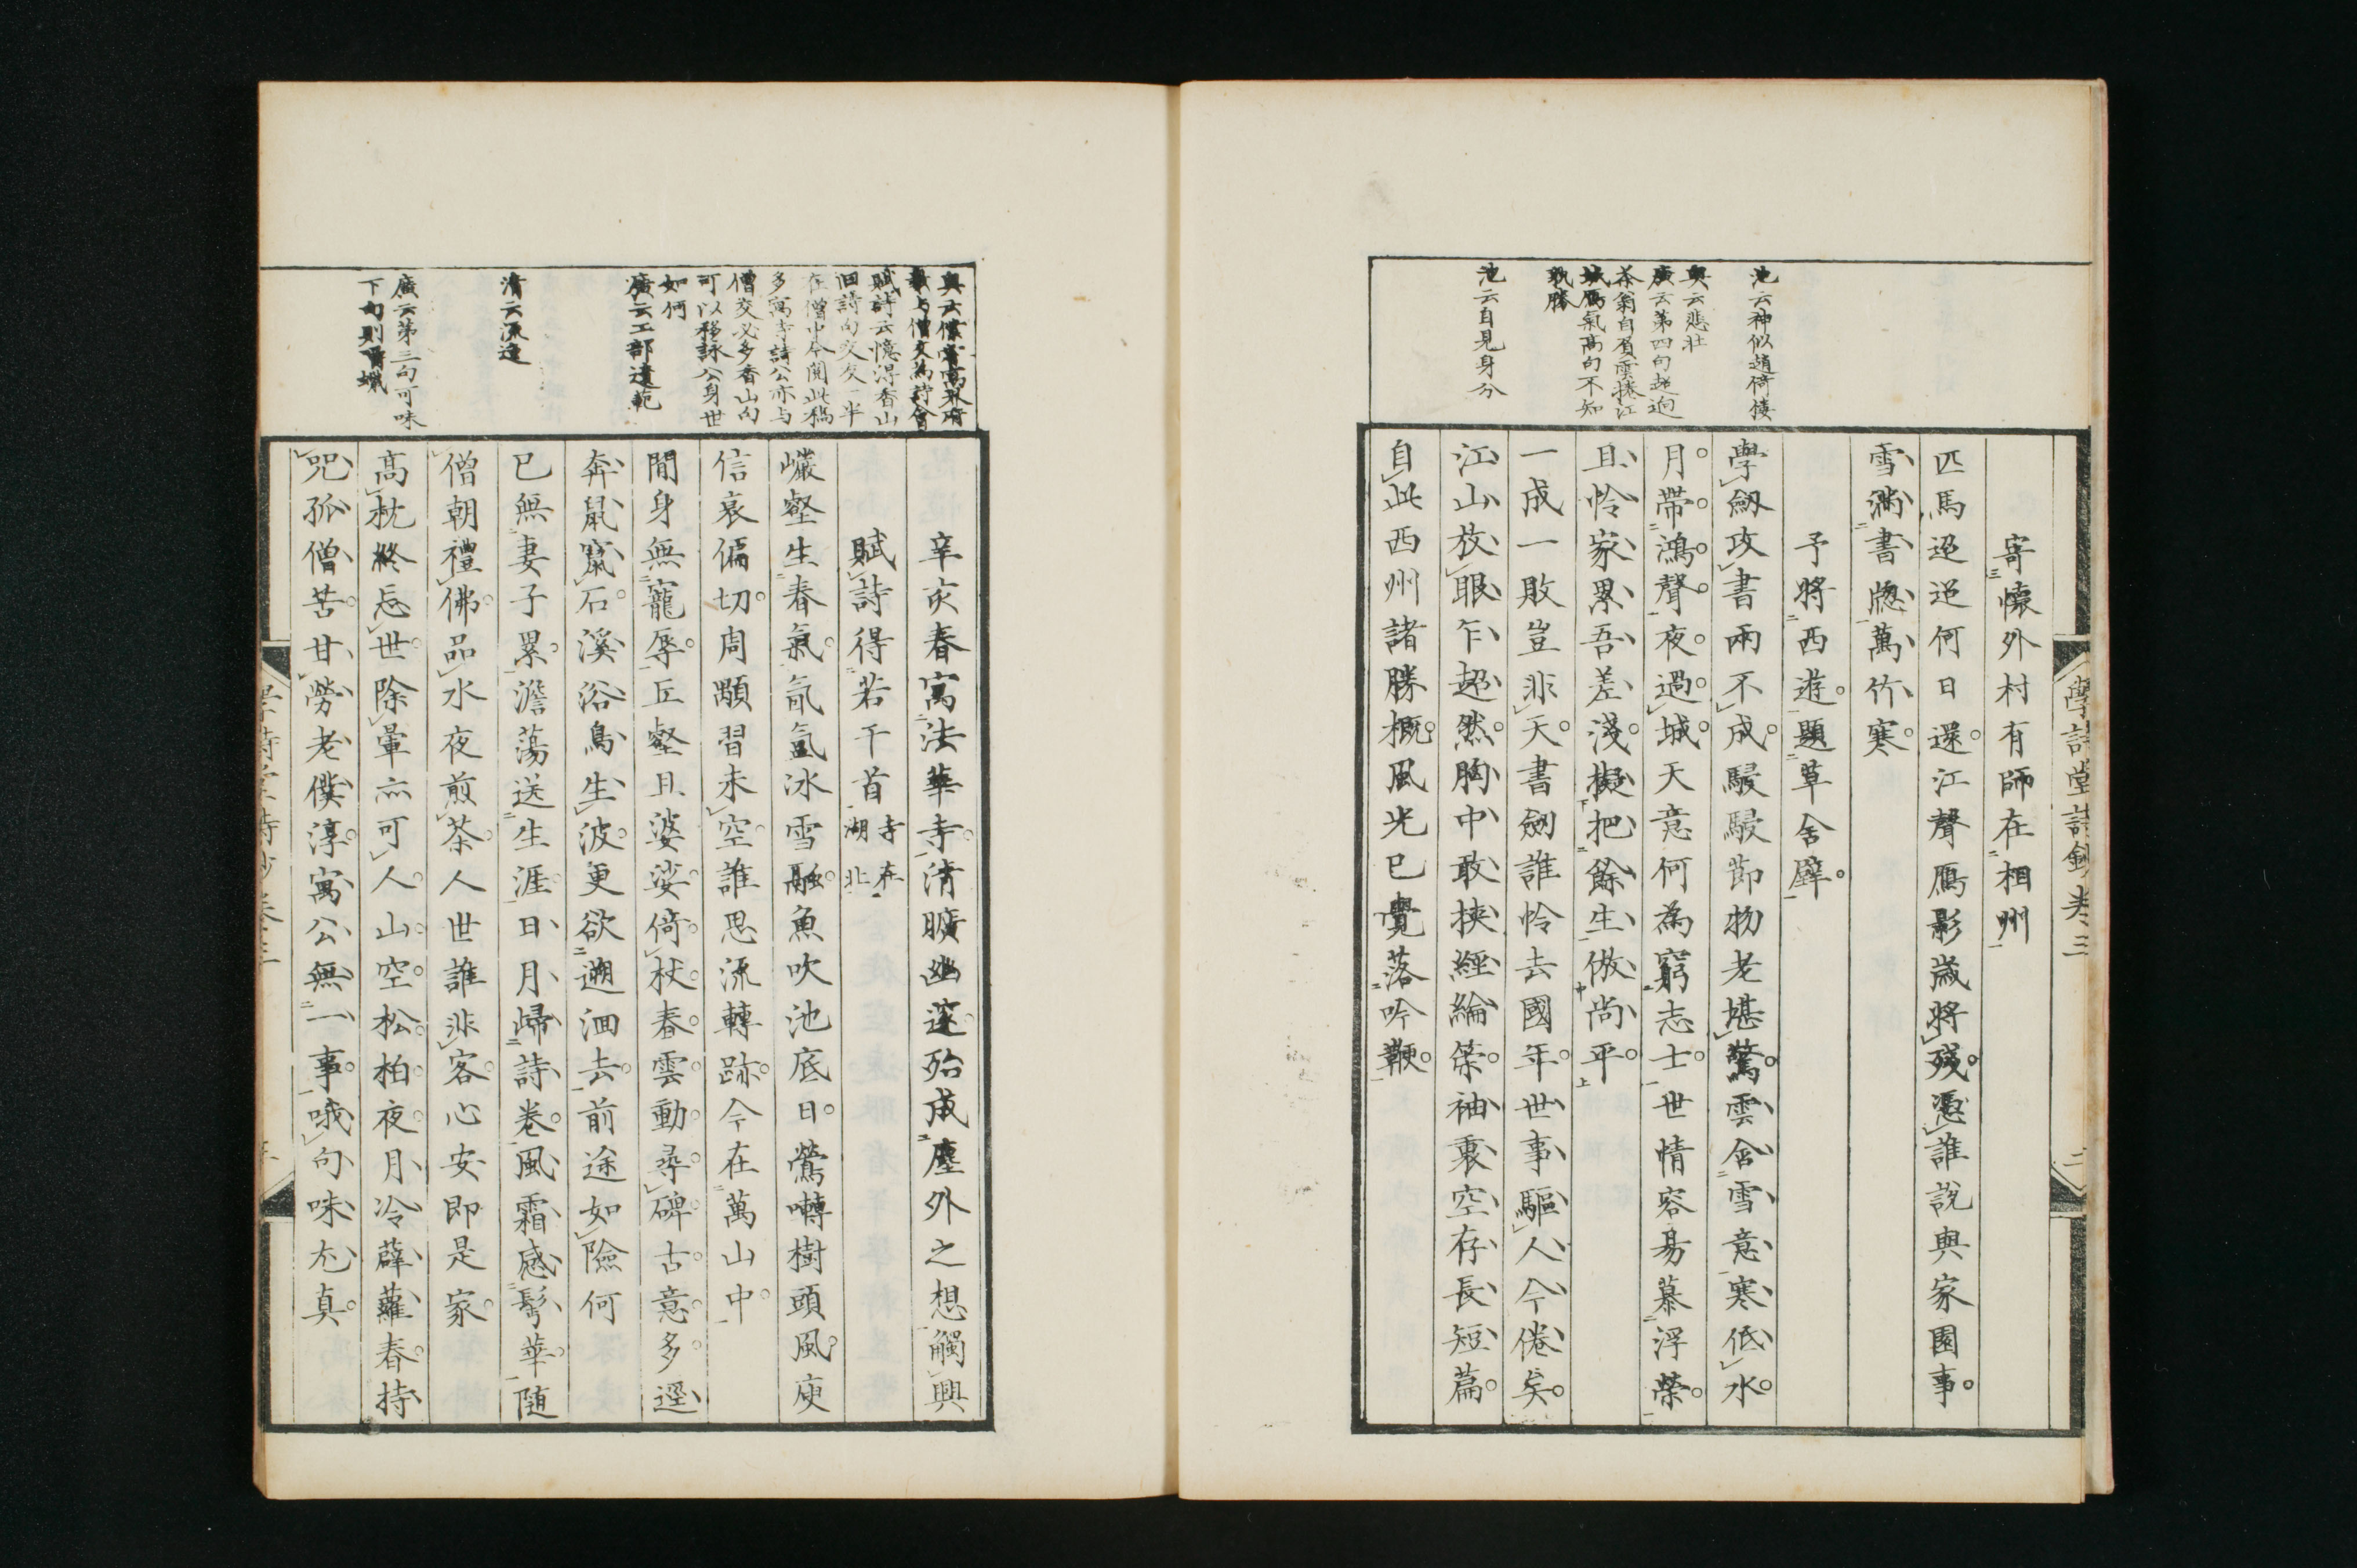 學詩堂詩鈔卷三
二
寄懷外村有師在相州
匹馬迢迢何日還江聲鴈影歲將殘憑誰說與家園事
雪滿書牕萬竹寒
予將西遊題草舍壁
學劔攻書兩不成駸駸節物老堪驚雲含雪意寒低水
月帶鴻聲夜過城天意何為窮志士世情容易慕浮榮
且怜家累吾差淺擬把餘生倣尚平
一成一敗豈非天書劔誰怜去國年世事驅人今倦矣
江山放眼乍超然胸中敢挾經綸策袖裏空存長短篇
自此西州諸勝概風光已覺落吟鞭
池云神似趙倚樓
奧云悲壯
廣云第四句超逈
茶翁自眉雲捲江
城鴈氣高句不知
孰勝
池云自見身分
辛亥春寓法華寺清曠幽邃殆成塵外之想觸興
賦詩得若干首寺在湖北
巇壑生春氣氤氳冰雪融魚吹池底日鶯囀樹頭風庾
信哀偏切周顒習未空誰思流轉跡今在萬山中
間身無寵辱丘壑且婆娑倚杖春雲動尋碑古意多逕
奔鼠竄石溪浴鳥生波更欲遡洄去前途如險何
已無妻子累澹蕩送生涯日月歸詩卷風霜感鬂華隨
僧朝禮佛品水夜煎茶人世誰非客心安即是家
高枕終忘世除葷亦可人山空松柏夜月冷薜蘿春持
咒孤僧苦甘勞老僕淳寓公無一事哦句味尤真
賦詩云憶得香山
旧詩句交友一半
在僧中今閱此稿
多寓寺詩公亦与
僧交必多香山句
可以移詠公身世
如何
廣云工部遺範
清云流逸
廣云第三句可味
下句則嚼蠟